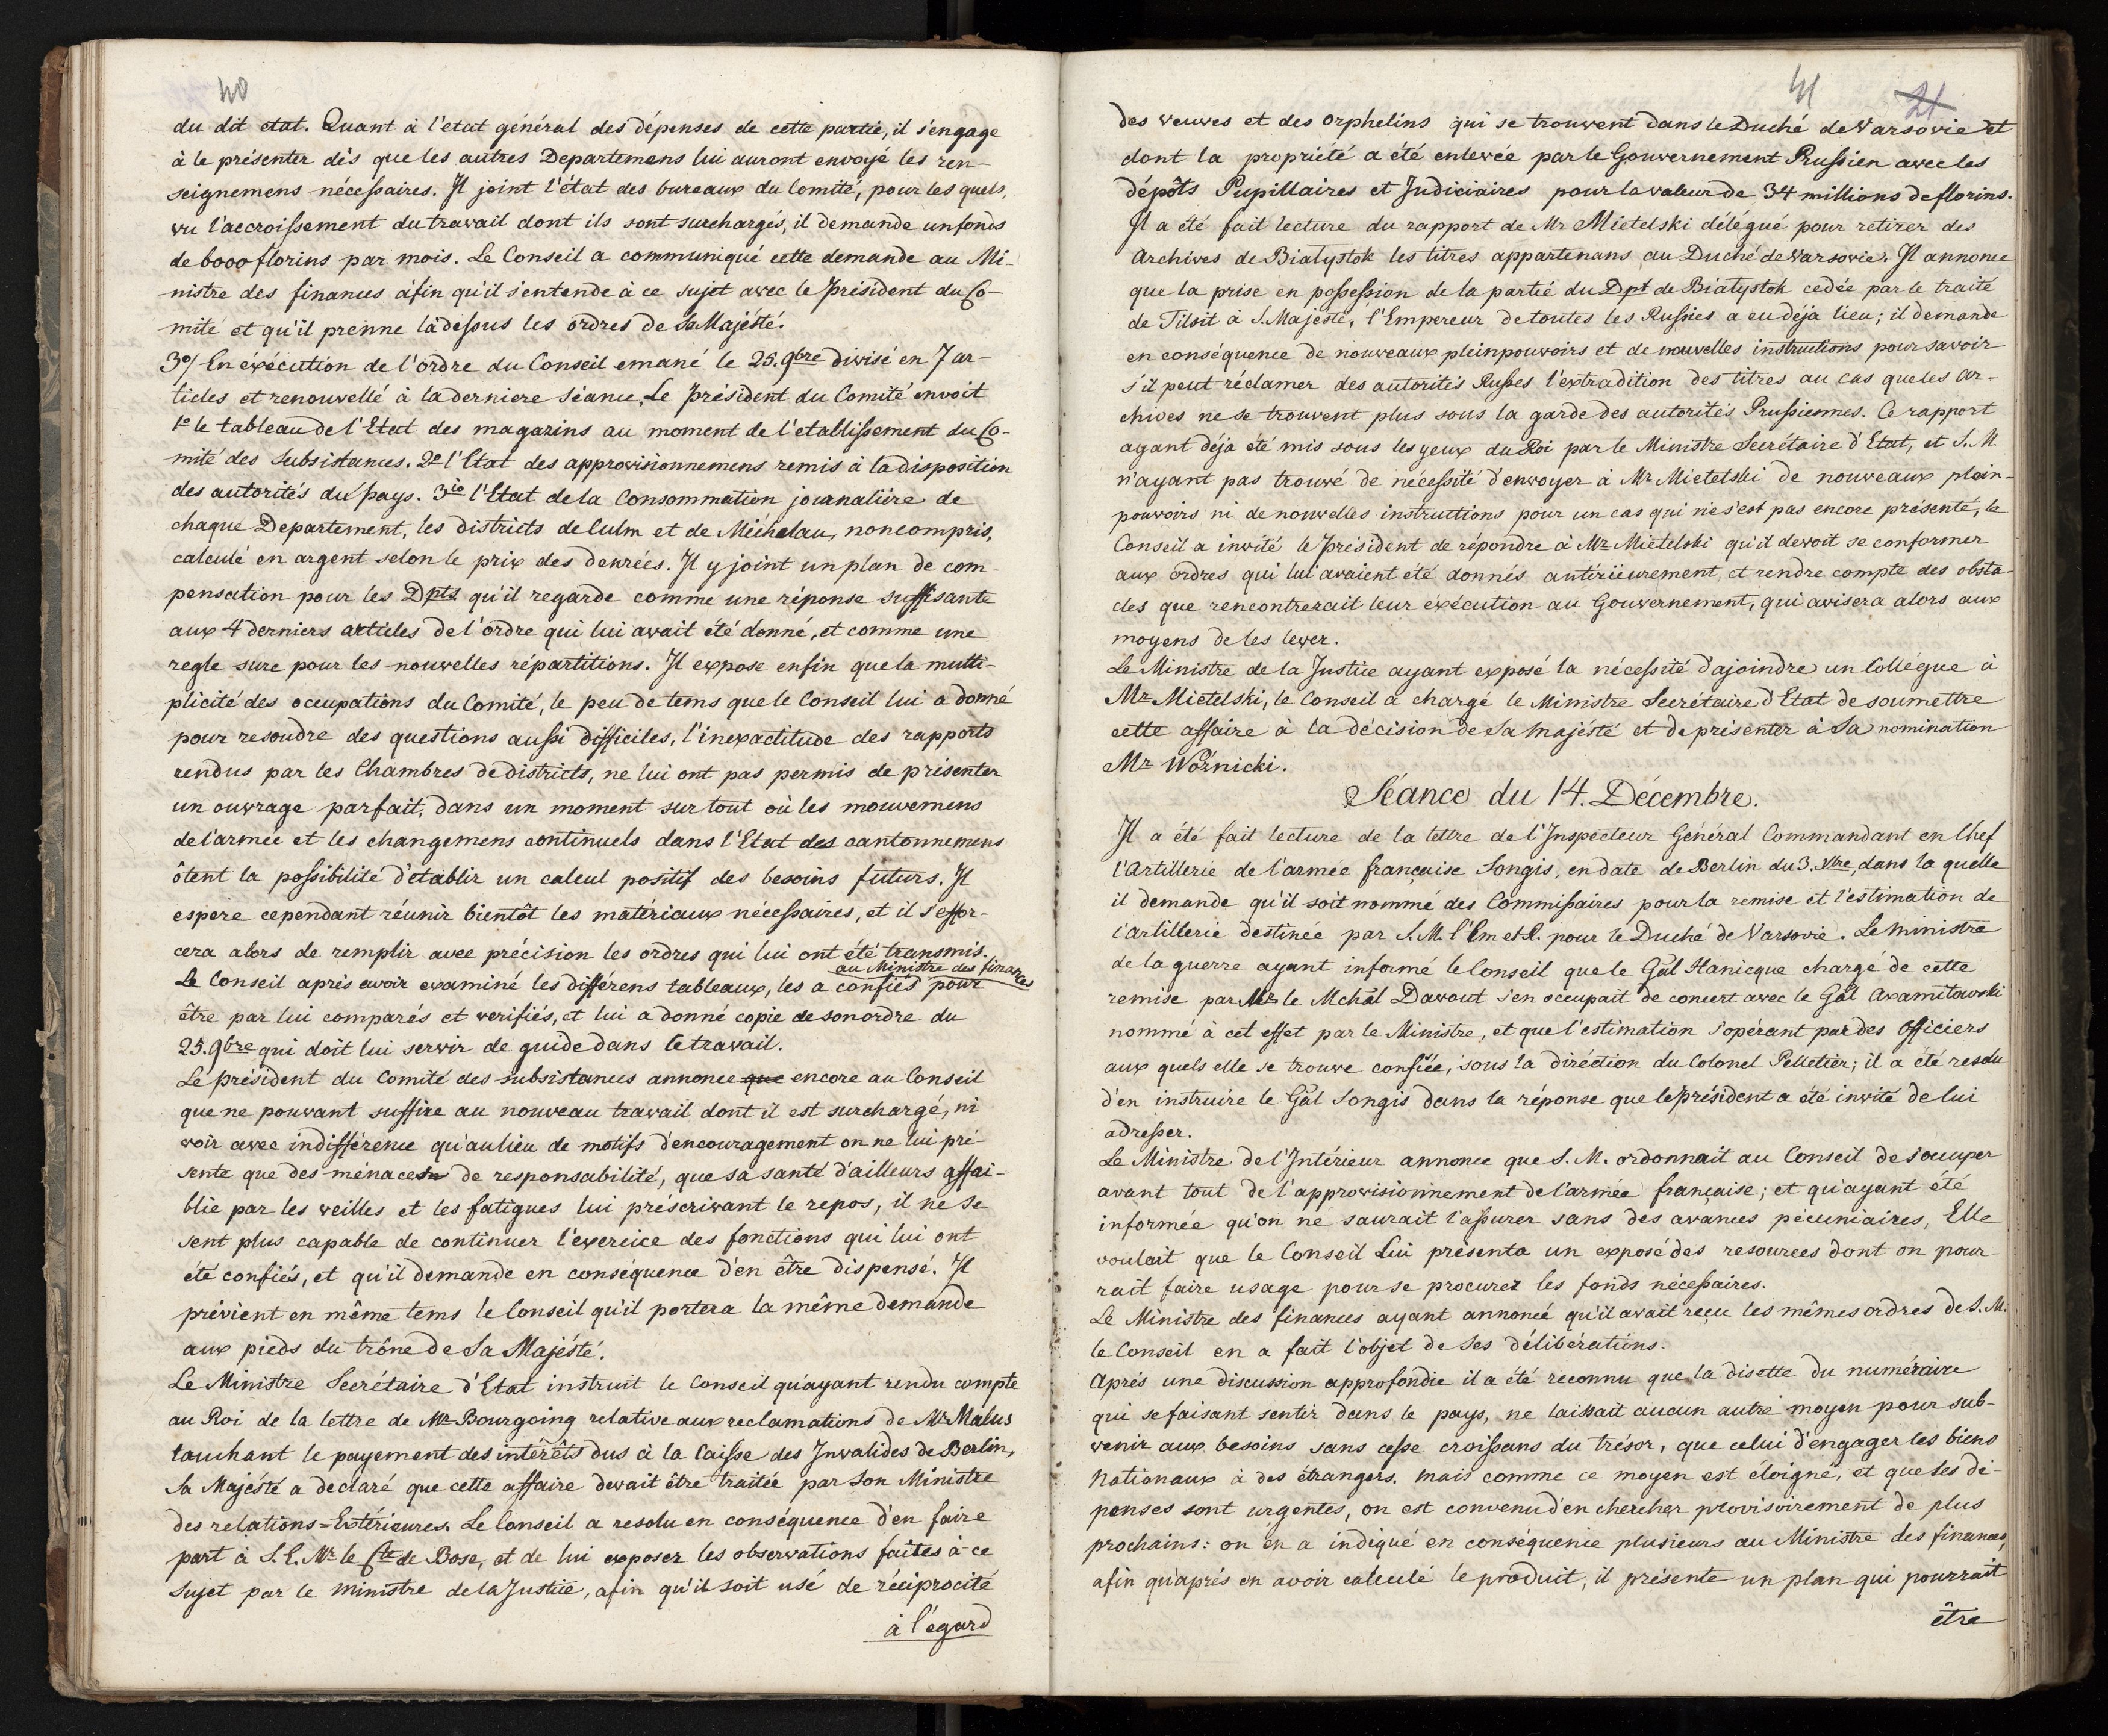 40
du dit etat. Quant à l'etat général des dépenses de cette partie, il s'engage
à le présenter dès que les autres Departemens lui auront envoyé les ren-
seignemens nécessaires. Il joint l'état des bureaux du Comité, pour les quels,
vu l'accroissement du travail dont ils sont surchargés, il demande un fonds
de 6000 florins par mois. Le Conseil a communiqué cette demande au Mi-
nistre des finances afin qu'il s'entende à ce sujet avec le Président du Co-
mité et qu'il prenne làdessus les ordres de Sa Majesté.
3º/ En éxécution de l'ordre du Conseil emané le 25. 9bre divisé en 7 ar-
ticles et renouvellé à la derniere Séance, Le Président du Comité envoit
1º le tableau de l'Etat des magazins au moment de l'etablissement du Co-
mité des Subsistances. 2º l'Etat des approvisionnemens remis à la disposition
des autorités du pays. 3io l'Etat de la Consommation journalière de
chaque Departement, les districts de Culm et de Michelau, non compris,
calculé en argent selon le prix des denrées. Il y joint un plan de com-
pensation pour les Dpts qu'il regarde comme une réponse suffisante
aux 4 derniers articles de l'ordre qui lui avait été donné, et comme une
regle sure pour les nouvelles répartitions. Il expose enfin que la multi-
plicité des occupations du Comité, le peu de tems que le Conseil lui a donné
pour resoudre des questions aussi difficiles, l'inexactitude des rapports
rendus par les Chambres de districts, ne lui ont pas permis de présenter
un ouvrage parfait, dans un moment sur tout où les mouvemens
de l'armée et les changemens continuels dans l'Etat des cantonnemens
ôtent la possibilité d'établir un calcul positif des besoins futurs. Il
espere cependant réunir bientôt les matériaux nécessaires, et il s'effor-
cera alors de remplir avec précision les ordres qui lui ont été transmis.
au Ministre des finances
Le Conseil après avoir examiné les différens tableaux, les a confiés pour
être par lui comparés et verifiés, et lui a donné copie de son ordre du
25. 9bre qui doit lui servir de guide dans le travail.
Le président du Comité des subsistances annonce que encore au Conseil
que ne pouvant suffire au nouveau travail dont il est surchargé, ni
voir avec indifférence qu'au lieu de motifs d'encouragement on ne lui pré-
sente que des ménaces de responsabilité, que sa santé d'ailleurs affai-
blie par les veilles et les fatigues lui préscrivant le repos, il ne se
sent plus capable de continuer l'exercice des fonctions qui lui ont
été confiés, et qu'il demande en conséquence d'en être dispensé. Il
prévient en même tems le Conseil qu'il portera la même demande
aux pieds du trône de Sa Majésté.
Le Ministre Secrétaire d'Etat instruit le Conseil qu'ayant rendu compte
au Roi de la lettre de Mr Bourgoing relative aux reclamations de Mr Malus
touchant le payement des intérêts dus à la Caisse des Invalides de Berlin,
Sa Majésté a declaré que cette affaire devait être traitée par Son Ministre
des relations=Extérieures. Le Conseil a resolu en conséquence d'en faire
part à S. E. Mr le Cte de Bose, et de lui exposer les observations faites à ce
sujet par le Ministre de la Justice, afin qu'il soit usé de réciprocité
à l'égard
41 21
des veuves et des orphelins qui se trouvent dans le Duché de Varsovie et
dont la propriété a été enlevée par le Gouvernement Prussien avec les
dépôts Pupillaires et Judiciaires pour la valeur de 34 millions de florins.
Il a été fait lecture du rapport de Mr Mietelski délégué pour retirer des
Archives de Białystok les titres appartenans au Duché de Varsovie. Il annonce
que la prise en possession de la partie du Dpt de Białystok cedée par le traité
de Tilsit à S. Majesté, l'Empereur de toutes les Russies a eu déja lieu; il demande
en conséquence de nouveaux pleinpouvoirs et de nouvelles instructions pour savoir
s'il peut réclamer des autorités Russes l'extradition des titres au cas que les Ar-
chives ne se trouvent plus sous la garde des autorités Prussiennes. Ce rapport
ayant déja été mis sous les yeux du Roi par le Ministre Secrétaire d'Etat, et S. M.
n'ayant pas trouvé de nécessité d'envoyer à Mr Mietelski de nouveaux plein-
pouvoirs ni de nouvelles instructions pour un cas qui ne s'est pas encore présenté, le
Conseil a invité le Président de répondre à Mr Mietelski qu'il devoit se conformer
aux ordres qui lui avaient été donnés antérieurement, et rendre compte des obsta-
cles que rencontrerait leur éxécution au Gouvernement, qui avisera alors aux
moyens de les lever.
Le Ministre de la Justice ayant exposé la nécessité d'ajoindre un Collégue à
Mr Mietelski, le Conseil a chargé le Ministre Secrétaire d'Etat de soumettre
cette affaire à la décision de Sa Majésté et de présenter à Sa nomination
Mr Woźnicki.
Séance du 14. Décembre.
Il a été fait lecture de la lettre de l'Inspecteur Général Commandant en Chef
l'Artillerie de l'armée française Songis, en date de Berlin du 3. Xbre, dans la quelle
il demande qu'il soit nommé des Commissaires pour la remise et l'estimation de
l'artillerie destinée par S. M. l'Em et R. pour le Duché de Varsovie. Le ministre
de la guerre ayant informé le Conseil que le Gal Hanicque chargé de cette
remise par Mr le Mchal Davout s'en occupait de concert avec le Gal Axamitowski
nommé à cet effet par le Ministre, et que l'estimation s'opérant par des Officiers
aux quels elle se trouve confiée, sous la diréction du Colonel Pelletier; il a été resolu
d'en instruire le Gal Songis dans la réponse que le président a été invité de lui
adresser.
Le Ministre de l'Intérieur annonce que S. M. ordonnait au Conseil de s'occuper
avant tout de l'approvisionnement de l'armée française; et qu'ayant été
informée qu'on ne saurait l'assurer sans des avances pécuniaires, Elle
voulait que le Conseil Lui présenta un exposé des resources dont on pour-
rait faire usage pour se procurer les fonds nécessaires.
Le Ministre des finances ayant annoncé qu'il avait reçu les mêmes ordres de S. M.
le Conseil en a fait l'objet de ses délibérations.
Après une discussion approfondie il a été reconnu que la disette du numéraire
qui se faisant sentir dans le pays, ne laissait aucun autre moyen pour sub-
venir aux besoins sans cesse croissans du trésor, que celui d'engager les biens
Nationaux à des étrangers. Mais comme ce moyen est éloigné, et que les dé-
penses sont urgentes, on est convenu d'en chercher provisoirement de plus
prochains: on en a indiqué en conséquence plusieurs au Ministre des finances,
afin qu'après en avoir calculé le produit, il présente un plan qui pourrait
être